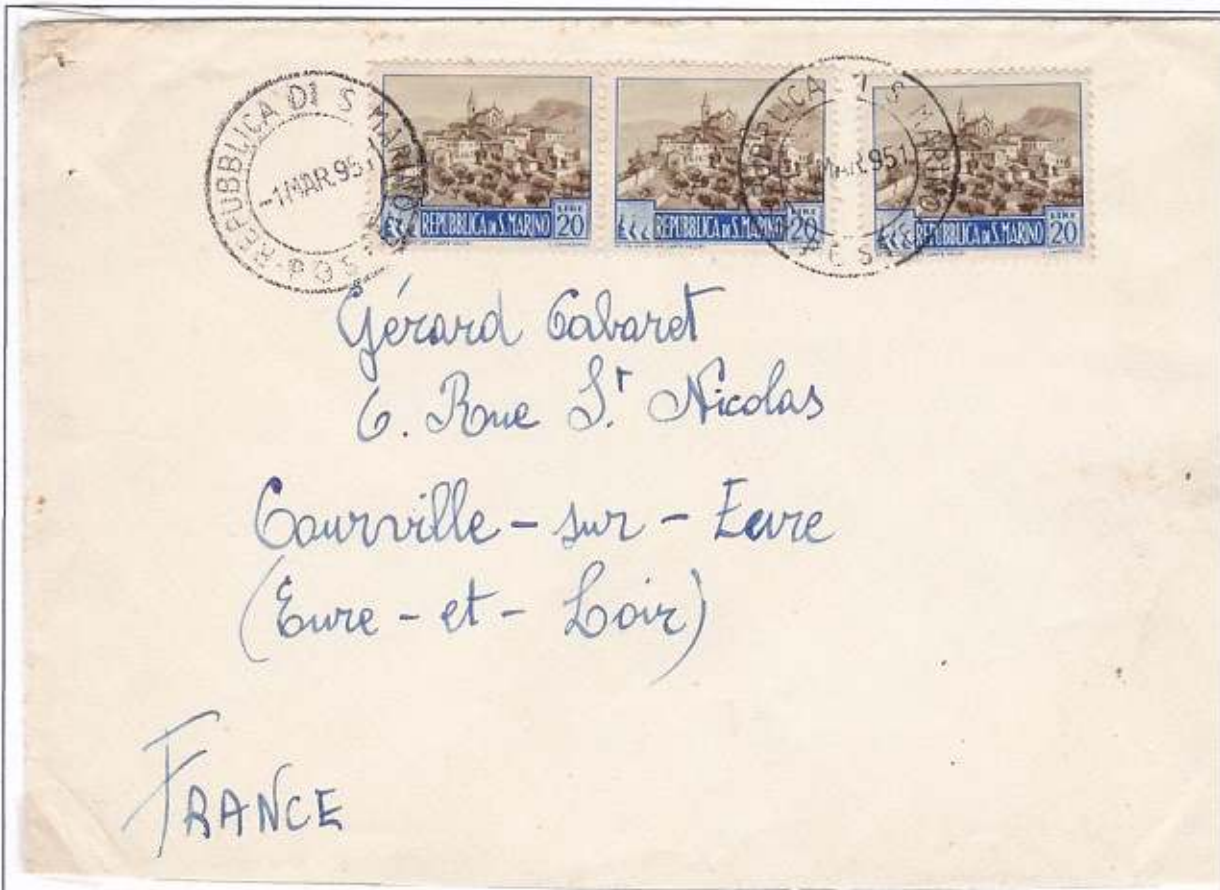 REPUBBLICA DI S. MARINO
-1 MAR. 951
REPUBBLICA DI S. MARINO
LIRE
20
REPUBBLICA DI S. MARINO
LIRE
20
REPUBBLICA DI S. MARINO
MAR. 951
REPUBBLICA DI S. MARINO
LIRE
20
Gérard Cabaret
6. Rue St Nicolas
Courville - sur - Eure
(Eure - et - Loir)
FRANCE